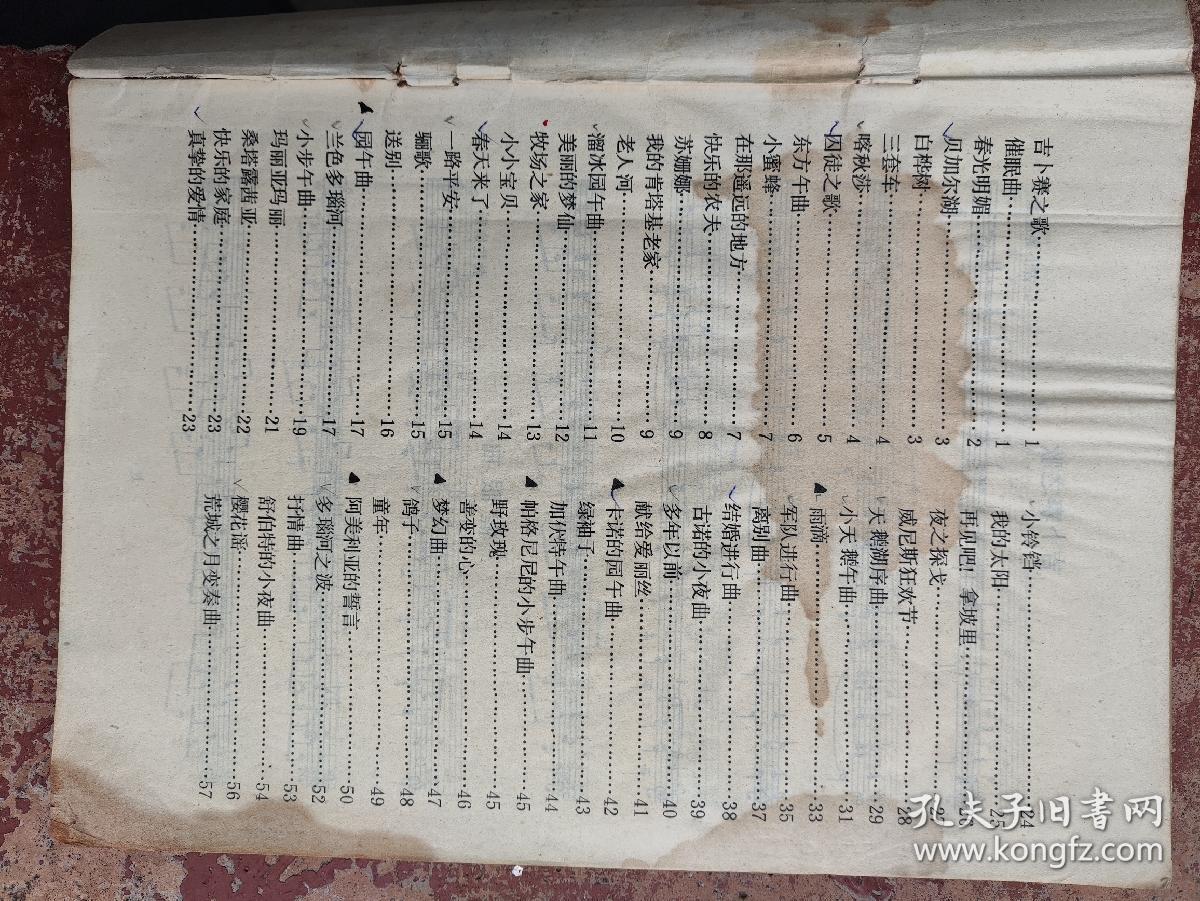 吉卜赛之歌 1
催眠曲 1
春光明媚 2
贝加尔湖 3
白桦树 3
三套车 4
喀秋莎 4
囚徒之歌 5
东方午曲 6
小蜜蜂 7
在那遥远的地方 7
快乐的农夫 8
苏姗娜 9
我的肯塔基老家 9
老人河 10
溜冰园午曲 11
美丽的梦仙 12
牧场之家 13
小小宝贝 14
春天来了 14
一路平安 15
骊歌 15
送别 16
园午曲 17
兰色多瑙河 17
小步午曲 19
玛丽亚玛丽 21
桑塔露茜亚 22
快乐的家庭 23
真挚的爱情 23
小铃铛 24
我的太阳 25
再见吧！拿坡里 26
夜之探戈
威尼斯狂欢节 28
天鹅湖序曲 29
小天鹅午曲 31
雨滴 33
军队进行曲 35
离别曲 37
结婚进行曲 38
古诺的小夜曲 39
多年以前 40
献给爱丽丝 41
卡诺的园午曲 42
绿袖子 43
加伏特午曲 44
帕格尼尼的小步午曲 45
野玫瑰 45
善变的心 46
梦幻曲 47
鸽子 48
童年 49
阿美利亚的誓言 50
多瑙河之波 52
抒情曲 53
舒伯特的小夜曲 54
樱花谣 56
荒城之月变奏曲 57
孔夫子旧书网
www.kongfz.com